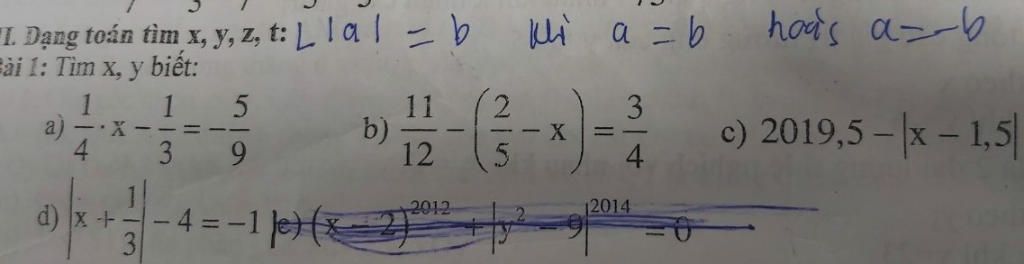 II. Dạng toán tìm x, y, z, t: L |a| = b khi a = b hoặc a = -b
Bài 1: Tìm x, y biết:
a) 1/4 · x − 1/3 = − 5/9 b) 11/12 − (2/5 − x) = 3/4 c) 2019,5 − |x − 1,5|
d) |x + 1/3| − 4 = −1 e) (x − 2)^2012 + |y^2 − 9|^2014 = 0